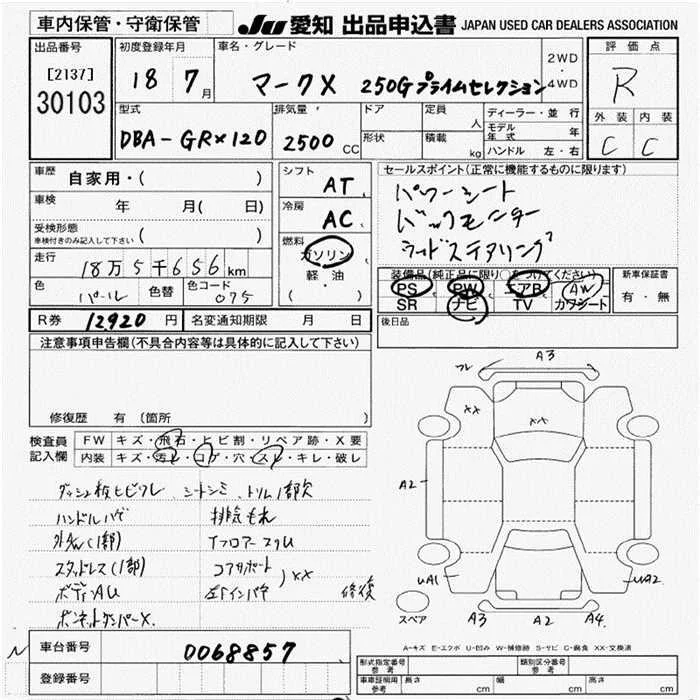 車内保管・守衛保管
JU 愛知 出品申込書 JAPAN USED CAR DEALERS ASSOCIATION
出品番号
[2137]
30103
初度登録年月
18 7月
車名・グレード
マークX 250Gプライムセレクション
2WD
・
4WD
評価点
R
外装 内装
C C
型式
DBA-GRX120
排気量
2500 CC
ドア
形状
定員 人
積載 kg
ディーラー・並行
モデル年式 年
ハンドル 左・右
車歴 自家用・( )
車検 年 月( 日)
受検形態
車検付きのみ記入して下さい ( )
走行 18万5千656km
色 パール 色替 色コード 075
シフト AT
冷房 AC
燃料 ガソリン
軽・油
( )
セールスポイント(正常に機能するものに限ります)
パワーシート
バックモニター
ウッドステアリング
装備品(純正品に限り○をつけてください)
PS PW エアB AW
SR ナビ TV カワシート
新車保証書
有・無
後日品
R券 12920円 名変通知期限 月 日
注意事項申告欄(不具合内容等は具体的に記入して下さい)
修復歴 有(箇所
検査員記入欄
FW キズ・飛石・ヒビ割・リペア跡・X要
内装 キズ・汚レ・コゲ・穴・スレ・キレ・破レ
ダッシュ板ヒビワレ シートシミ、トリム1部欠
ハンドルハゲ 排気もれ
外AW(1部) TフロアースリU
スタッドレス(1部) コアサポート
ボディAU インパネ )XX 修復
ボンネットダンパーX
フレ A3
XX XX
A2
UA1 UA2
スペア A3 A2 A4
A-キズ E-エクボ U-凹み W-補修跡 S-サビ C-腐食 XX-交換済
車台番号 0068857
登録番号
形式指定番号
参考
類別区分番号
参考
車車証明用
参考
長さ cm 幅 cm 高さ cm